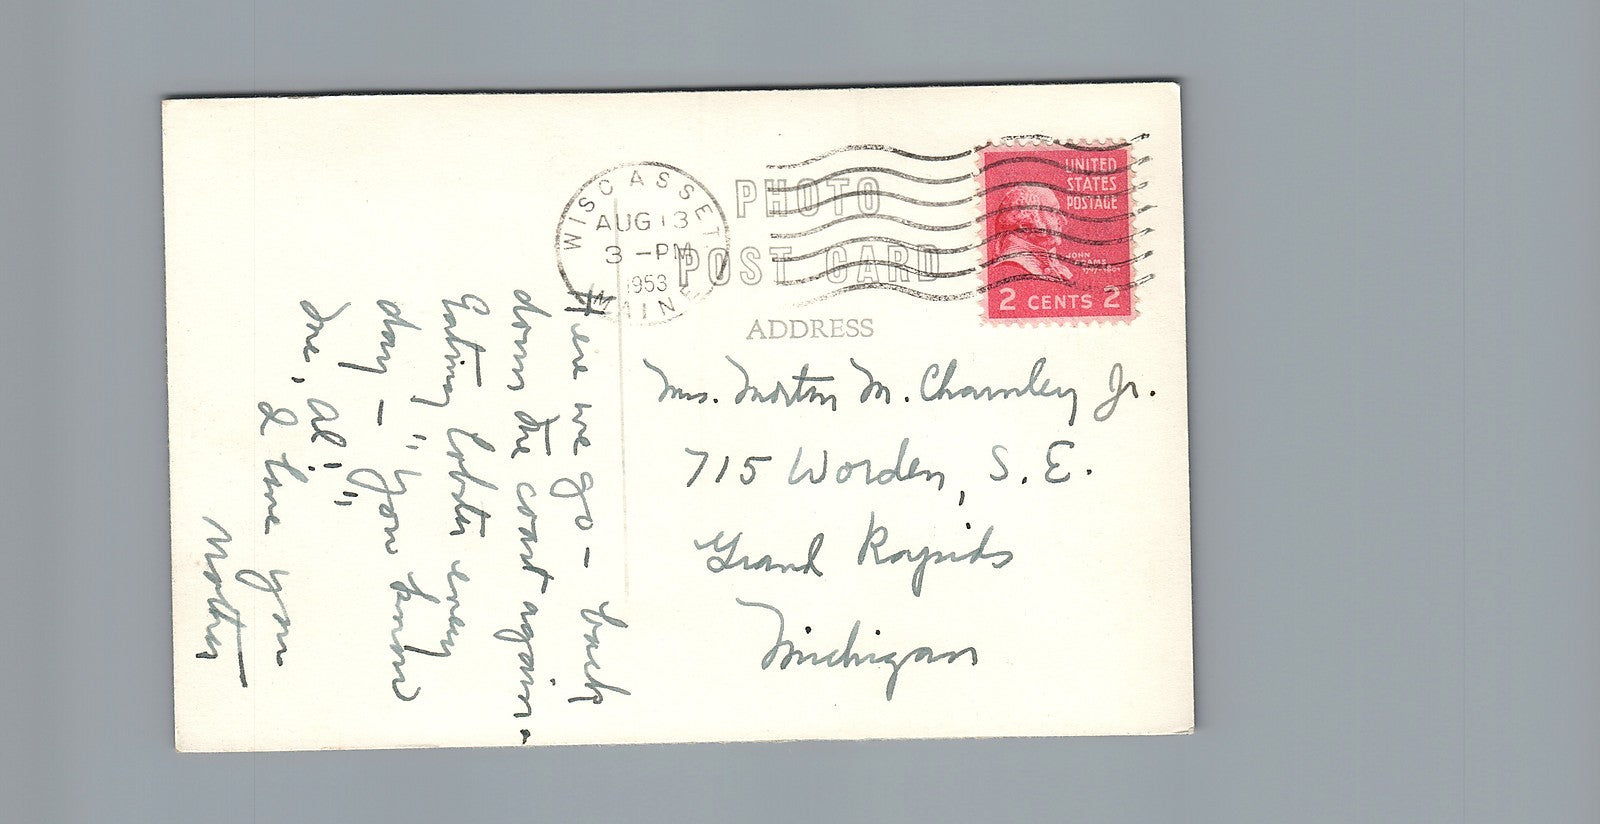 WISCASSET
AUG 13
3 - PM
1953
MAINE
PHOTO
POST CARD
ADDRESS
UNITED
STATES
POSTAGE
JOHN
ADAMS
2 CENTS 2
Mrs. Morton M. Chamley Jr.
715 Worden, S.E.
Grand Rapids
Michigan
Here we go - back
down the coast again -
Eating lobster every
day - "you know
me, Al!"
I love you
Mother